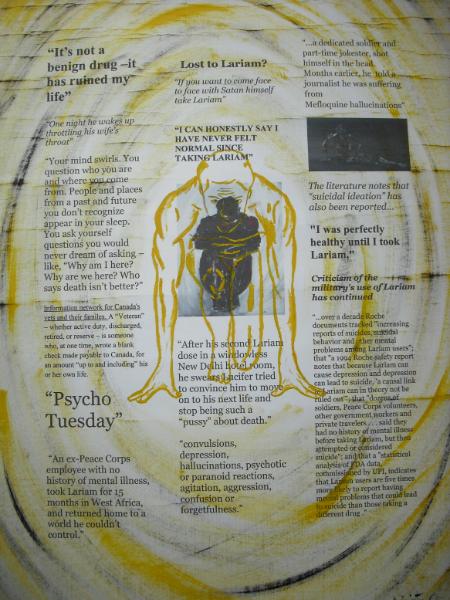 "It's not a
benign drug –it
has ruined my
life"
"One night he wakes up
throttling his wife's
throat"
"Your mind swirls. You
question who you are
and where you come
from. People and places
from a past and future
you don't recognize
appear in your sleep.
You ask yourself
questions you would
never dream of asking –
like, "Why am I here?
Why are we here? Who
says death isn't better?"
Information network for Canada's
vets and their familes. A "Veteran"
– whether active duty, discharged,
retired, or reserve – is someone
who, at one time, wrote a blank
check made payable to Canada, for
an amount "up to and including" his
or her own life.
"Psycho
Tuesday"
"An ex-Peace Corps
employee with no
history of mental illness,
took Lariam for 15
months in West Africa,
and returned home to a
world he couldn't
control."
Lost to Lariam?
"If you want to come face
to face with Satan himself
take Lariam"
"I CAN HONESTLY SAY I
HAVE NEVER FELT
NORMAL SINCE
TAKING LARIAM"
"After his second Lariam
dose in a windowless
New Delhi hotel room,
he swears Lucifer tried
to convince him to move
on to his next life and
stop being such a
"pussy" about death."
"convulsions,
depression,
hallucinations, psychotic
or paranoid reactions,
agitation, aggression,
confusion or
forgetfulness."
"...a dedicated soldier and
part-time jokester, shot
himself in the head.
Months earlier, he told a
journalist he was suffering
from
Mefloquine hallucinations"
The literature notes that
"suicidal ideation" has
also been reported...
"I was perfectly
healthy until I took
Lariam,"
Criticism of the
military's use of Lariam
has continued
"...over a decade Roche
documents tracked "increasing
reports of suicides, suicidal
behavior and other mental
problems among Lariam users";
that "a 1994 Roche safety report
notes that because Lariam can
cause depression and depression
can lead to suicide, 'a causal link
to Lariam can in theory not be
ruled out'"; that "dozens of
soldiers, Peace Corps volunteers,
other government workers and
private travelers . . . said they
had no history of mental illness
before taking Lariam, but then
attempted or considered
suicide"; and that a "statistical
analysis of FDA data,
commissioned by UPI, indicates
that Lariam users are five times
likely to report having
mental problems that could lead
to suicide than those taking a
different drug."